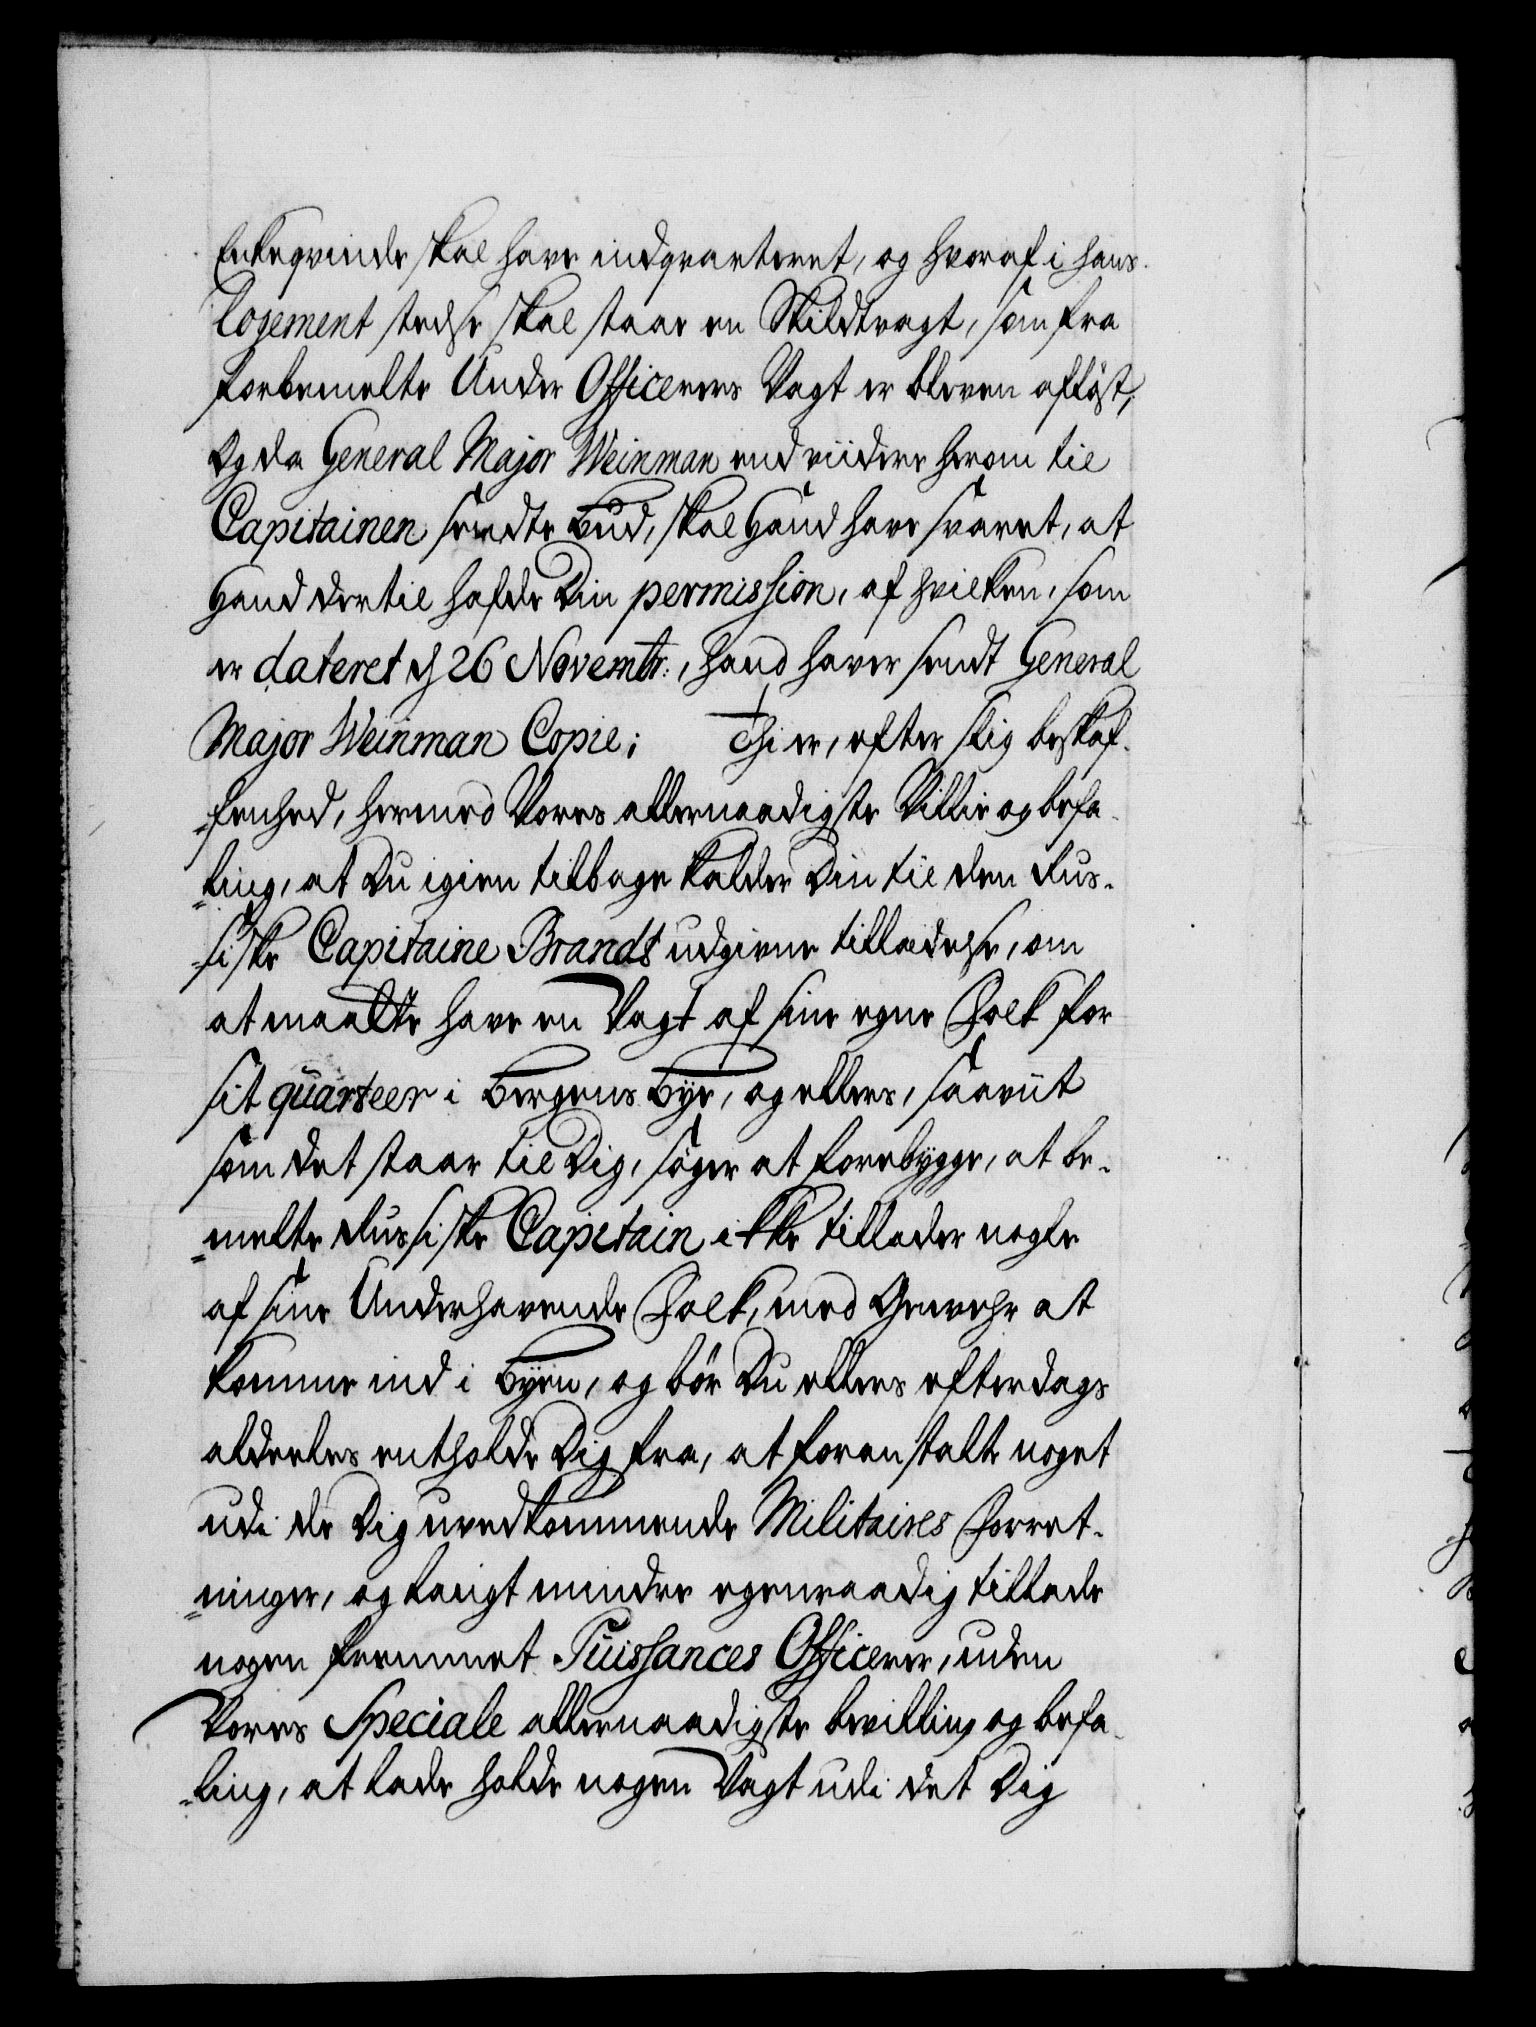 Enkeqvinde skal have indqvarteret, og hvoraf i hans
logement stedse skal staae en Skildtvagt, som fra
forbemelte Under Officerers Vagt er bleven aflöst,
Og da General Major Weinman end viidere herom til
Capitainen sendte bud, skal hand have svaret, at
hand dertil hafde Din permission, af hvilken, som
er dateret d 26 Novembr:, hand haver sendt General
Major Weinman Copie; Thi er, efter slig beskaf-
=fenhed, hermed Vores allernaadigste Villie og befa-
=ling, at Du igien tilbage kalder Din til den Rus-
=siske Capitaine Brandt udgivne tilladelse, om
at maatte have en Vagt af sine egne Folk for
sit quarteer i Bergens bye, og ellers, saaviit
som det staar til Dig, söger at forebygge, at be-
=melte Russiske Capitain ikke tillader nogle
af sine Underhavende Folk, med Gewehr at
komme ind i byen, og bör Du ellers efterdags
aldeeles entholde Dig fra, at foranstalte noget
udi de Dig uvedkommende Militaires Forret-
=ninger, og langt mindre egenraadig tillade
nogen fremmet Puissances Officerer, uden
Vores Speciale allernaadigste bevilling og befa-
=ling, at lade holde nogen Vagt udi det Dig